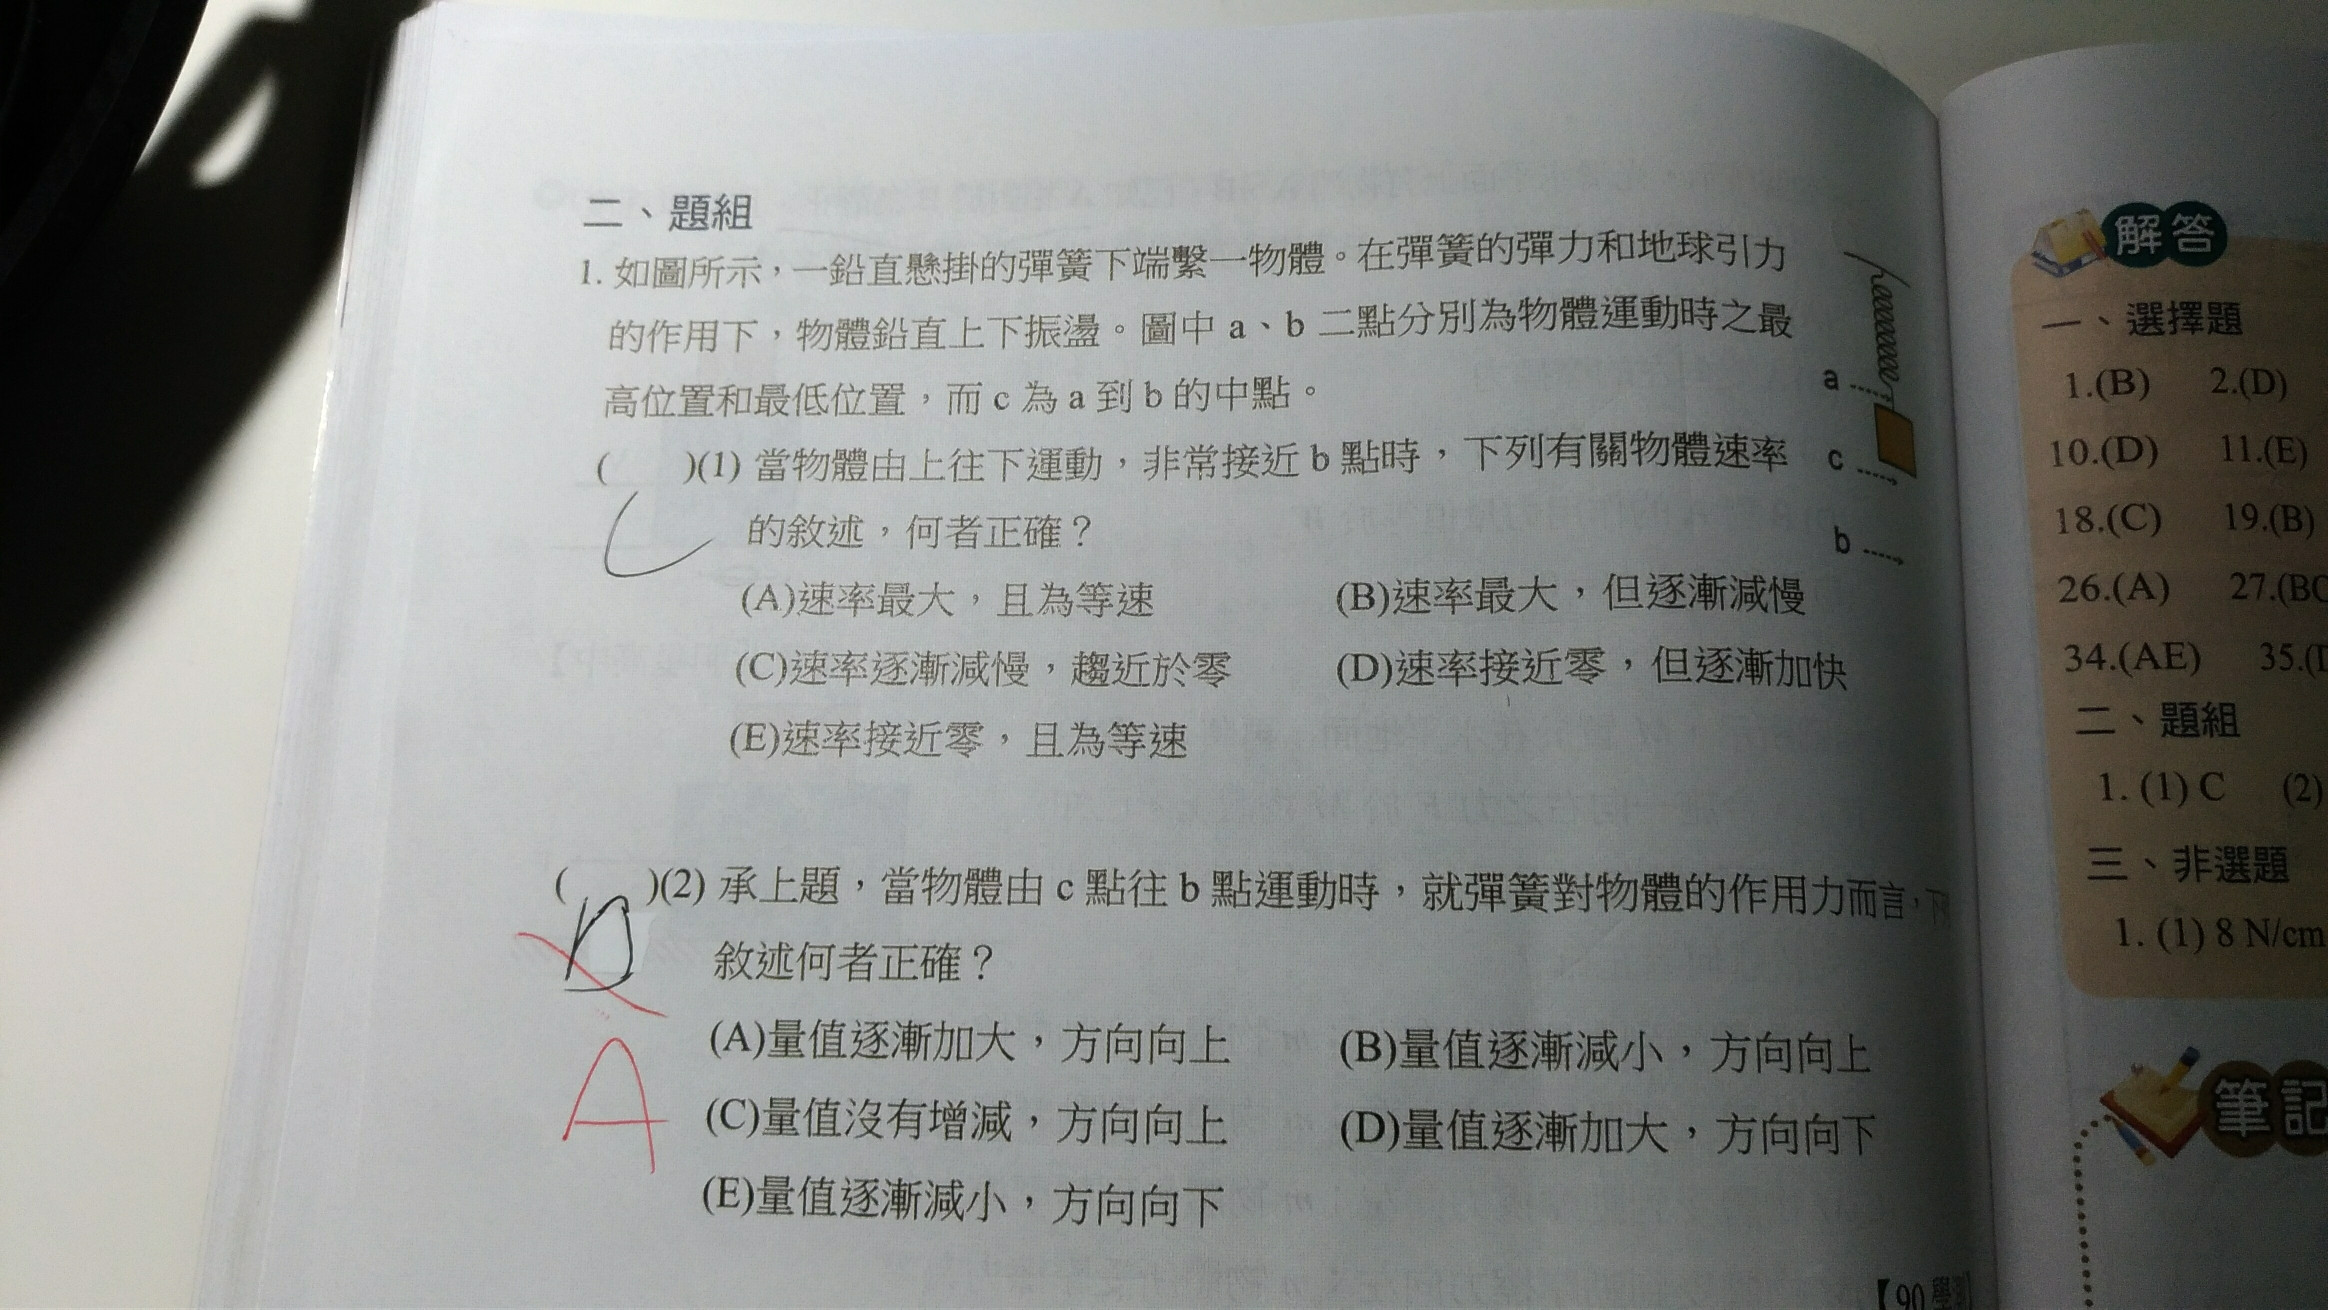 二、題組
1. 如圖所示，一鉛直懸掛的彈簧下端繫一物體。在彈簧的彈力和地球引力
的作用下，物體鉛直上下振盪。圖中 a、b 二點分別為物體運動時之最
高位置和最低位置，而 c 為 a 到 b 的中點。
a
c
b
( )(1) 當物體由上往下運動，非常接近 b 點時，下列有關物體速率
C
的敘述，何者正確？
(A)速率最大，且為等速 (B)速率最大，但逐漸減慢
(C)速率逐漸減慢，趨近於零 (D)速率接近零，但逐漸加快
(E)速率接近零，且為等速
( )(2) 承上題，當物體由 c 點往 b 點運動時，就彈簧對物體的作用力而言，下
D
敘述何者正確？
A
(A)量值逐漸加大，方向向上 (B)量值逐漸減小，方向向上
(C)量值沒有增減，方向向上 (D)量值逐漸加大，方向向下
(E)量值逐漸減小，方向向下
【90 學測
解答
一、選擇題
1.(B) 2.(D)
10.(D) 11.(E)
18.(C) 19.(B)
26.(A) 27.(BC
34.(AE) 35.(D
二、題組
1. (1) C (2)
三、非選題
1. (1) 8 N/cm
筆記